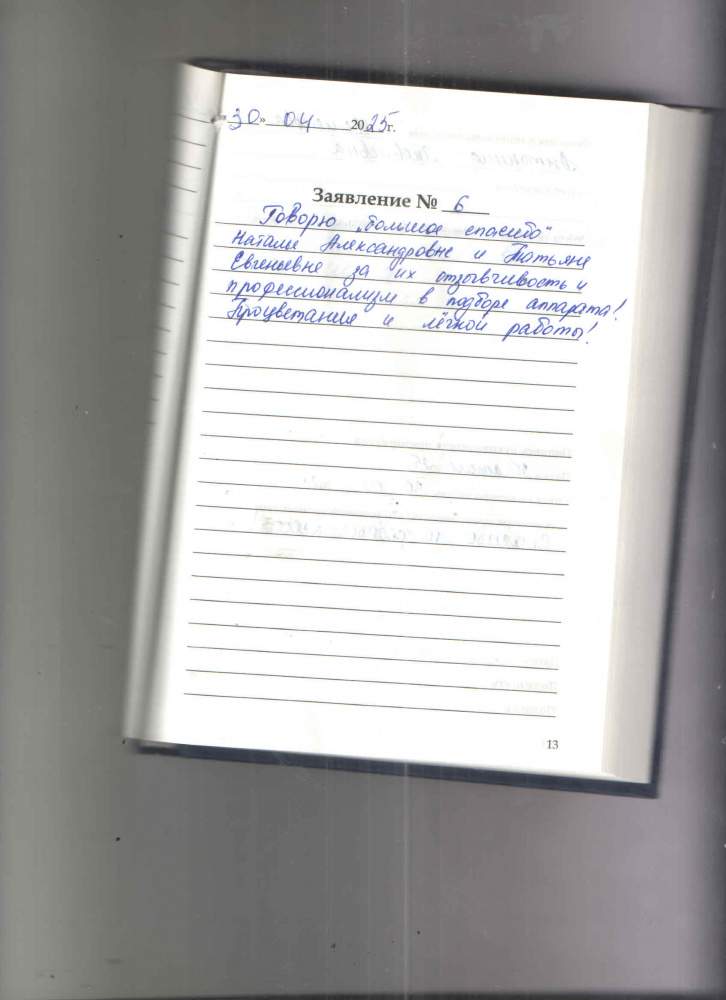 «30» 04 2025г.
Заявление № 6
Говорю „большое спасибо“
Наталье Александровне и Татьяне
Евгеньевне за их отзывчивость и
профессионализм в подборе аппарата!
Процветание и лёгкой работы!
13